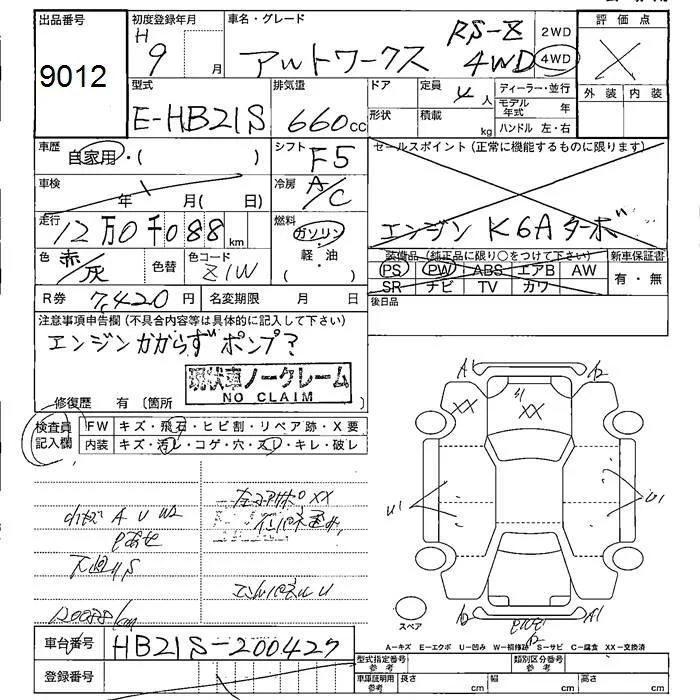 出品番号
9012
初度登録年月
H 9 月
車名・グレード
アルトワークス RS-Z 4WD
2WD
4WD
評価点
外装 内装
型式
E-HB21S
排気量
660cc
ドア
形状
定員 4人
積載 kg
ディーラー・並行
モデル年式 年
ハンドル 左・右
車歴
自家用・( )
シフト
F5
セールスポイント (正常に機能するものに限ります)
車検
年 月( 日)
冷房
A/C
走行
12万0千088km
燃料
ガソリン
軽・油
エンジン K6A ターボ
色
赤/灰
色替
色コード
Z1W
装備品 (純正品に限り○をつけて下さい)
PS PW ABS エアB AW
SR ナビ TV カワ
新車保証書
有・無
R券 7,420円
名変期限 月 日
後日品
注意事項申告欄 (不具合内容等は具体的に記入して下さい)
エンジンかからず ポンプ?
現状車ノークレーム
NO CLAIM
修復歴 有 〔箇所 〕
検査員記入欄
FW キズ・飛石・ヒビ割・リペア跡・X要
内装 キズ・汚レ・コゲ・穴・スレ・キレ・破レ
小キズ A U W2
下廻りS
120088km
エンパネル U
A1
XX
XX
U1
A1
スペア
A-キズ E-エクボ U-凹み W-補修跡 S-サビ C-腐食 XX-交換済
車台番号
HB21S-200427
登録番号
型式指定番号 参考
類別区分番号 参考
車庫証明用 参考
長さ cm
幅 cm
高さ cm